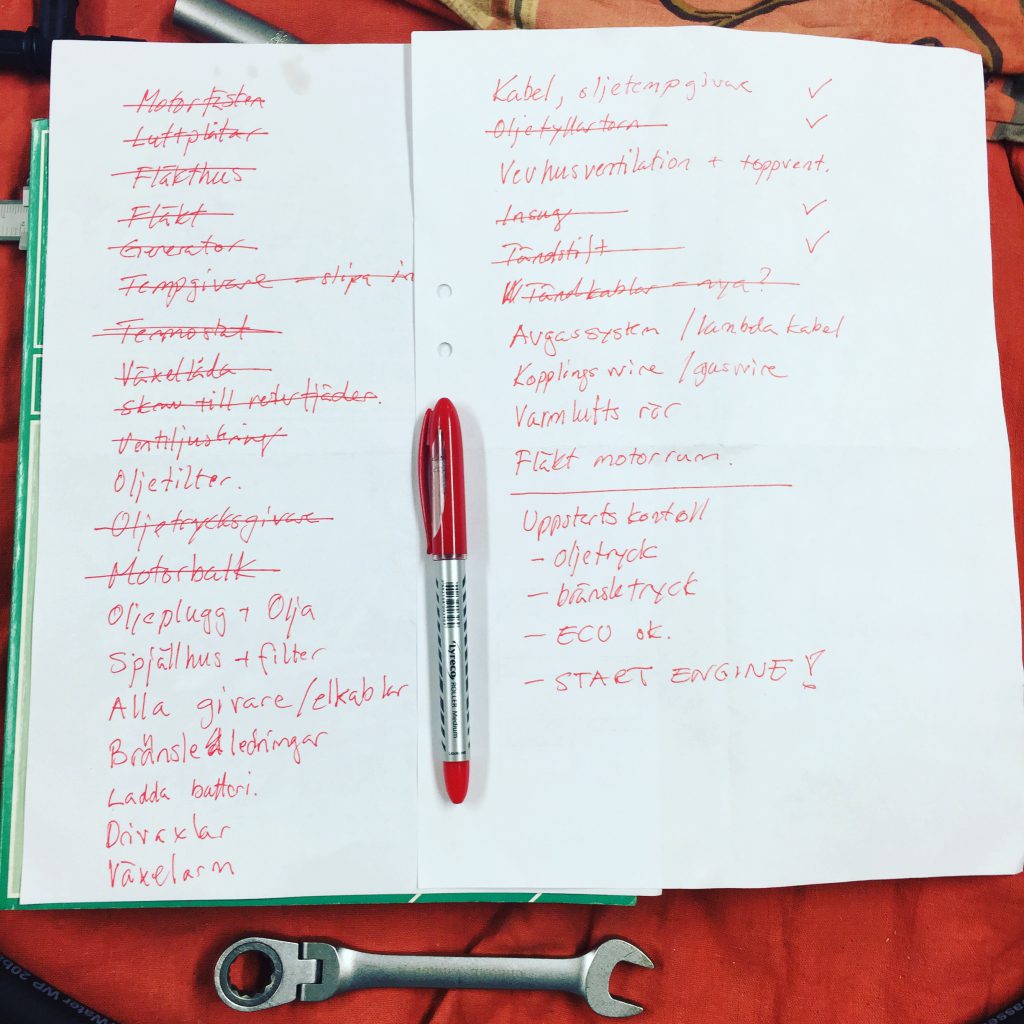 Motorfästen
Luftplåtar
Fläkthus
Fläkt
Generator
Tempgivare - slipa in
Termostat
Växellåda
Skruv till returfjäder.
Ventiljustering
Oljefilter.
Oljetrycksgivare
Motorbalk
Oljeplugg + Olja
Spjällhus + filter
Alla givare/elkablar
Bränsle ledningar
Ladda batteri.
Drivaxlar
Växelarm
Kabel, oljetempgivare ✓
Oljefyllartorn ✓
Vevhusventilation + toppvent.
Insug ✓
Tändstift ✓
Tändkablar - nya?
Avgassystem /lambda kabel
Kopplings wire /gaswire
Varmlufts rör
Fläkt motorrum.
Uppstarts kontoll
- oljetryck
- bränsletryck
- ECU ok.
- START ENGINE!
Lyreco ROLLER Medium
Water WP 20b